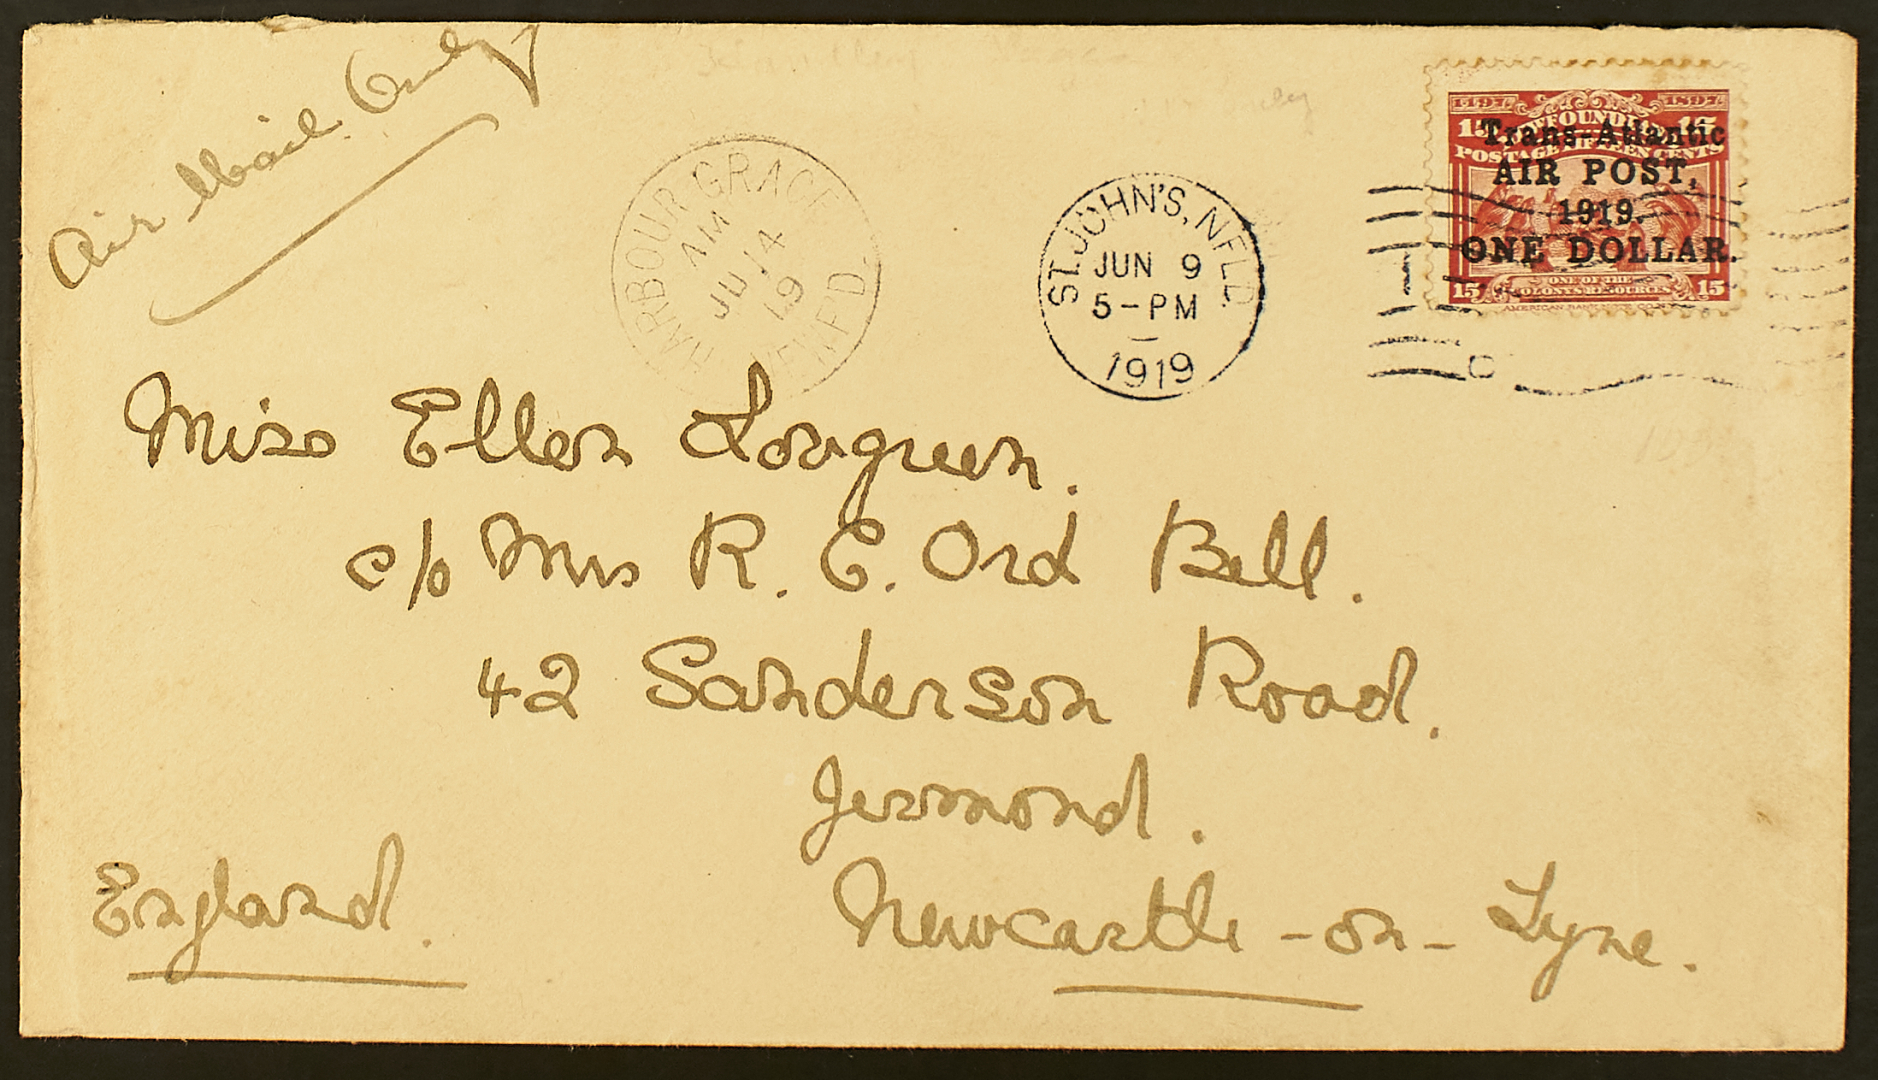 Air Mail Only
HARBOUR GRACE
AM
JU 14
19
NEWF'D
ST. JOHN'S, NFLD.
JUN 9
5-PM
1919
1497 1897
NEWFOUNDLAND
15 15
POSTAGE FIFTEEN CENTS
Trans-Atlantic
AIR POST,
1919.
ONE DOLLAR.
ONE OF THE
COLONYS RESOURCES
15 15
Miss Ellen Lovgreen.
c/o Mrs R. E. Ord Bell.
42 Sanderson Road.
Jesmond.
Newcastle-on-Tyne.
England.